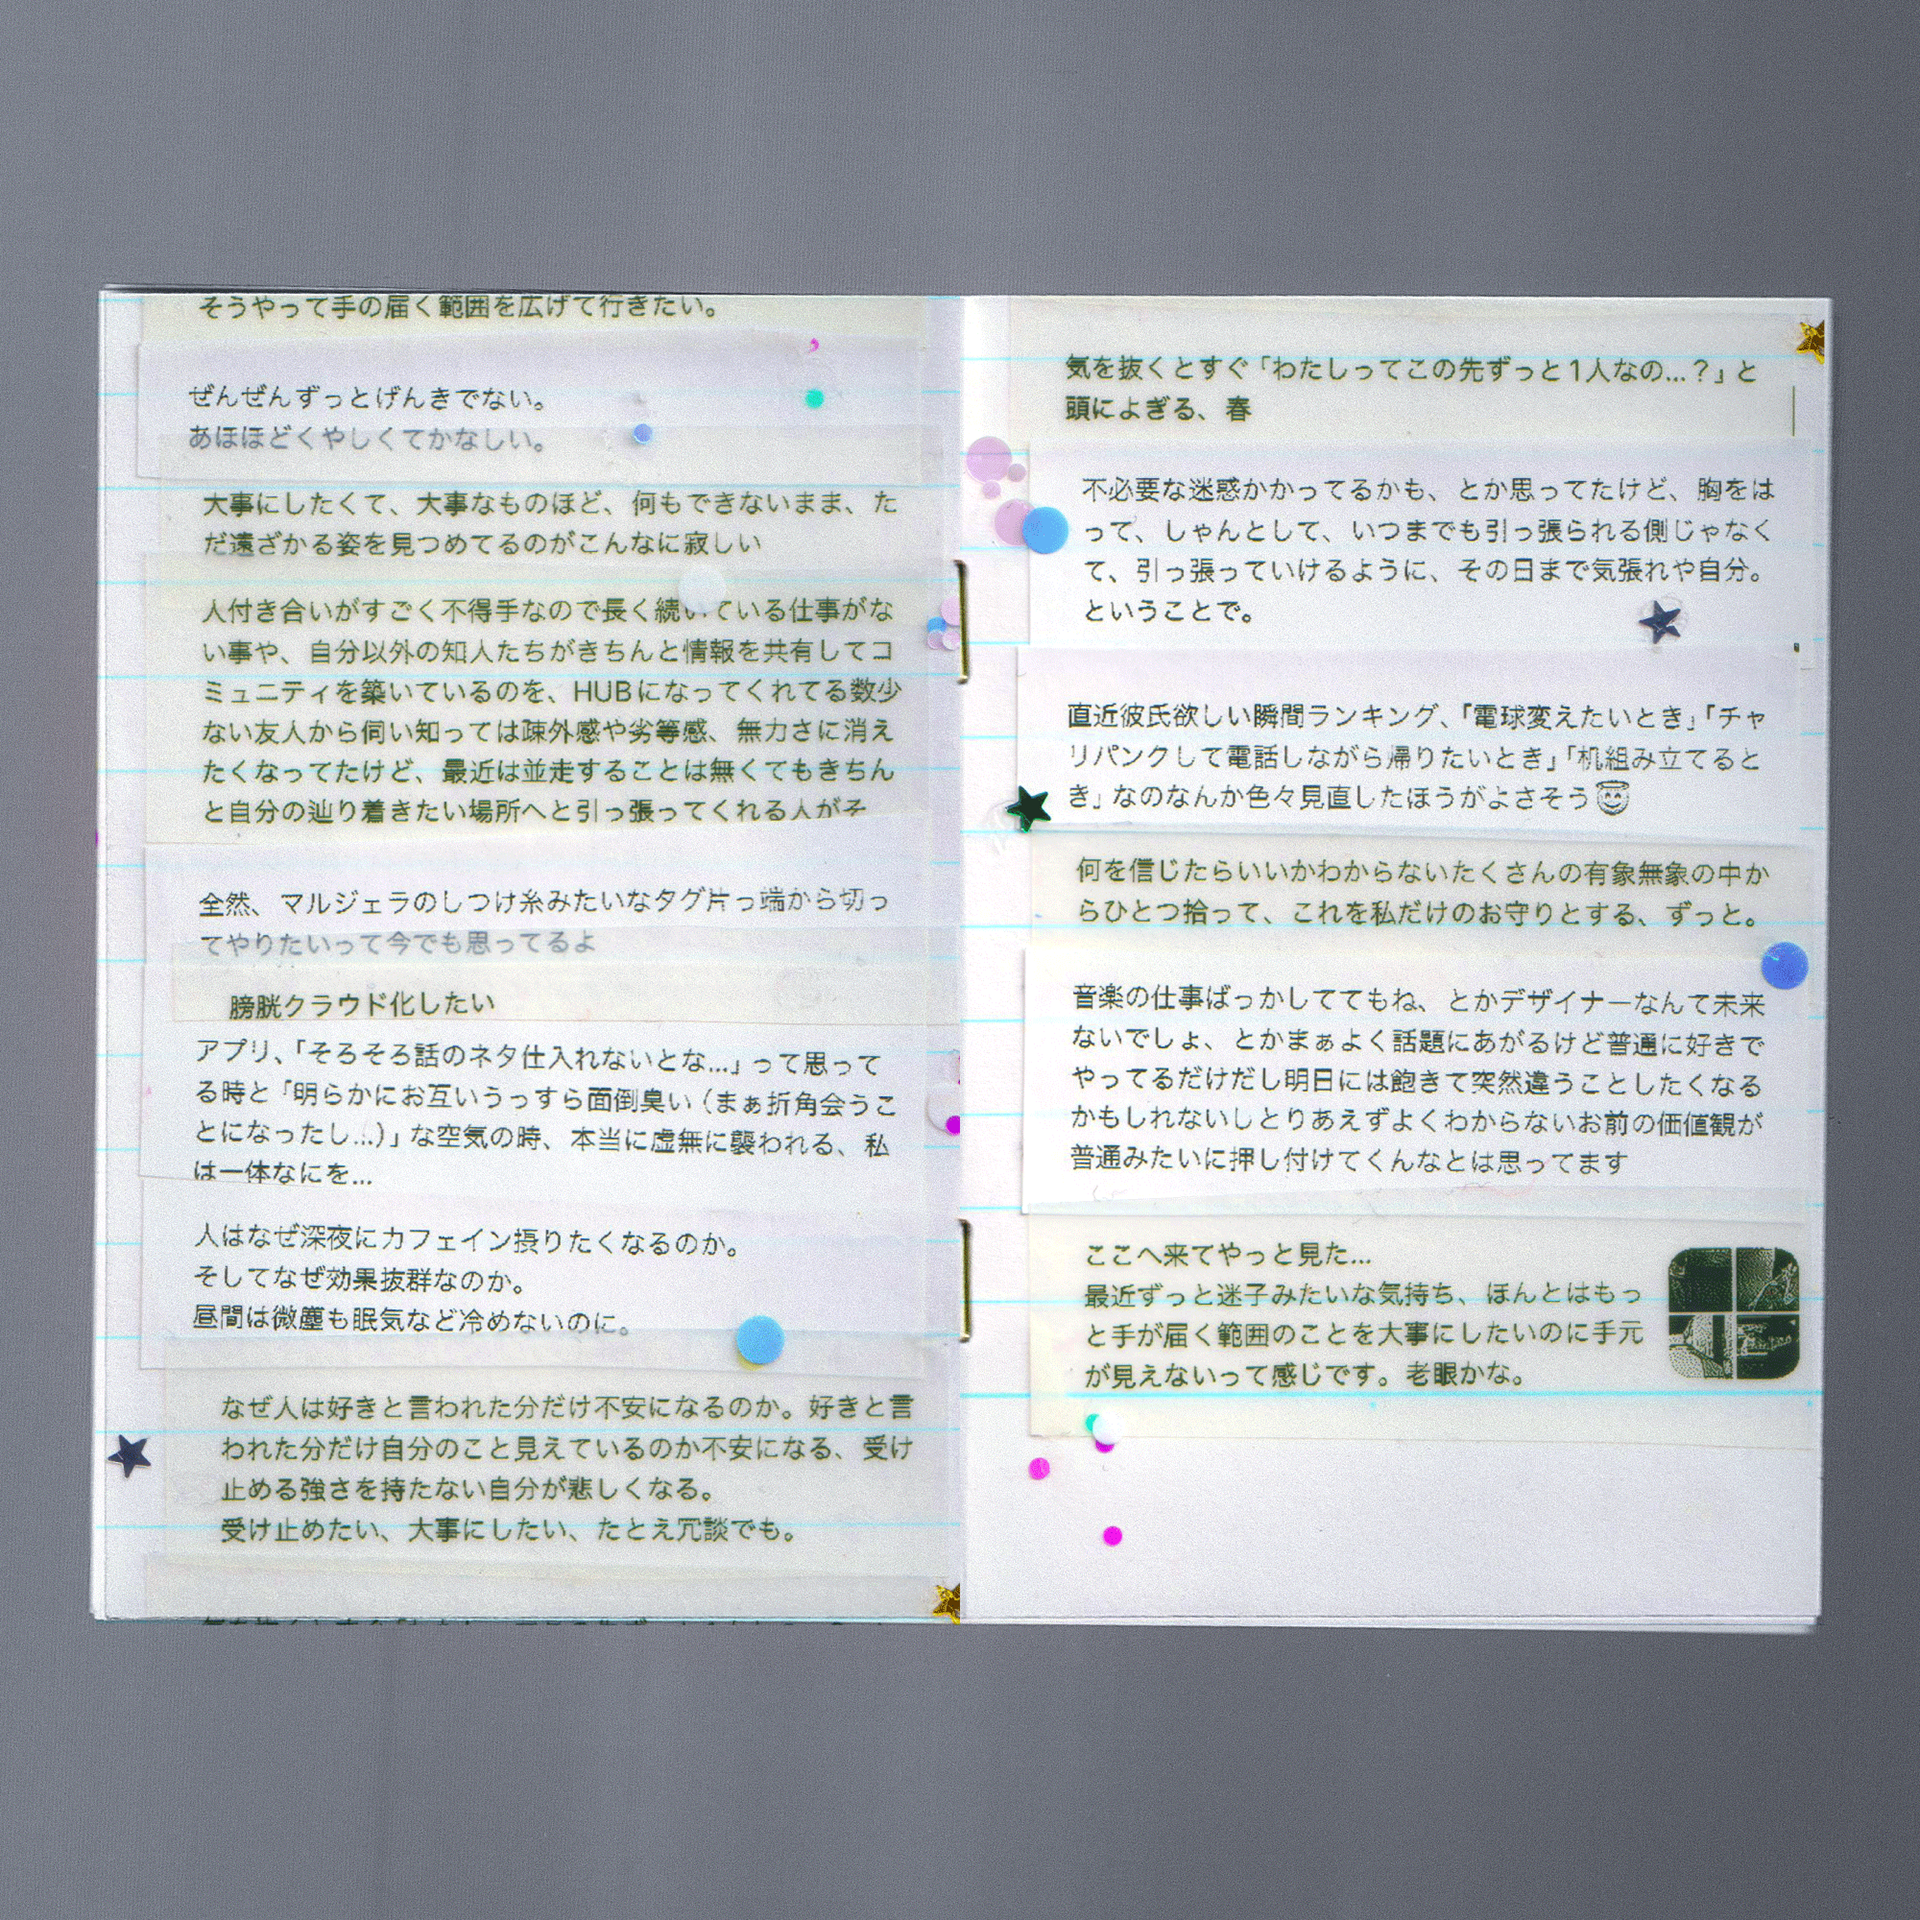 そうやって手の届く範囲を広げて行きたい。
ぜんぜんずっとげんきでない。
あほほどくやしくてかなしい。
大事にしたくて、大事なものほど、何もできないまま、た
だ遠ざかる姿を見つめてるのがこんなに寂しい
人付き合いがすごく不得手なので長く続いている仕事がな
い事や、自分以外の知人たちがきちんと情報を共有してコ
ミュニティを築いているのを、HUBになってくれてる数少
ない友人から伺い知っては疎外感や劣等感、無力さに消え
たくなってたけど、最近は並走することは無くてもきちん
と自分の辿り着きたい場所へと引っ張ってくれる人がそ
全然、マルジェラのしつけ糸みたいなタグ片っ端から切っ
てやりたいって今でも思ってるよ
膀胱クラウド化したい
アプリ、「そろそろ話のネタ仕入れないとな...」って思って
る時と「明らかにお互いうっすら面倒臭い（まぁ折角会うこ
とになったし...）」な空気の時、本当に虚無に襲われる、私
は一体なにを...
人はなぜ深夜にカフェイン摂りたくなるのか。
そしてなぜ効果抜群なのか。
昼間は微塵も眠気など冷めないのに。
なぜ人は好きと言われた分だけ不安になるのか。好きと言
われた分だけ自分のこと見えているのか不安になる、受け
止める強さを持たない自分が悲しくなる。
受け止めたい、大事にしたい、たとえ冗談でも。
気を抜くとすぐ「わたしってこの先ずっと1人なの...？」と
頭によぎる、春
不必要な迷惑かかってるかも、とか思ってたけど、胸をは
って、しゃんとして、いつまでも引っ張られる側じゃなく
て、引っ張っていけるように、その日まで気張れや自分。
ということで。
直近彼氏欲しい瞬間ランキング、「電球変えたいとき」「チャ
リパンクして電話しながら帰りたいとき」「机組み立てると
き」なのなんか色々見直したほうがよさそう😇
何を信じたらいいかわからないたくさんの有象無象の中か
らひとつ拾って、これを私だけのお守りとする、ずっと。
音楽の仕事ばっかしててもね、とかデザイナーなんて未来
ないでしょ、とかまぁよく話題にあがるけど普通に好きで
やってるだけだし明日には飽きて突然違うことしたくなる
かもしれないしとりあえずよくわからないお前の価値観が
普通みたいに押し付けてくんなとは思ってます
ここへ来てやっと見た...
最近ずっと迷子みたいな気持ち、ほんとはもっ
と手が届く範囲のことを大事にしたいのに手元
が見えないって感じです。老眼かな。